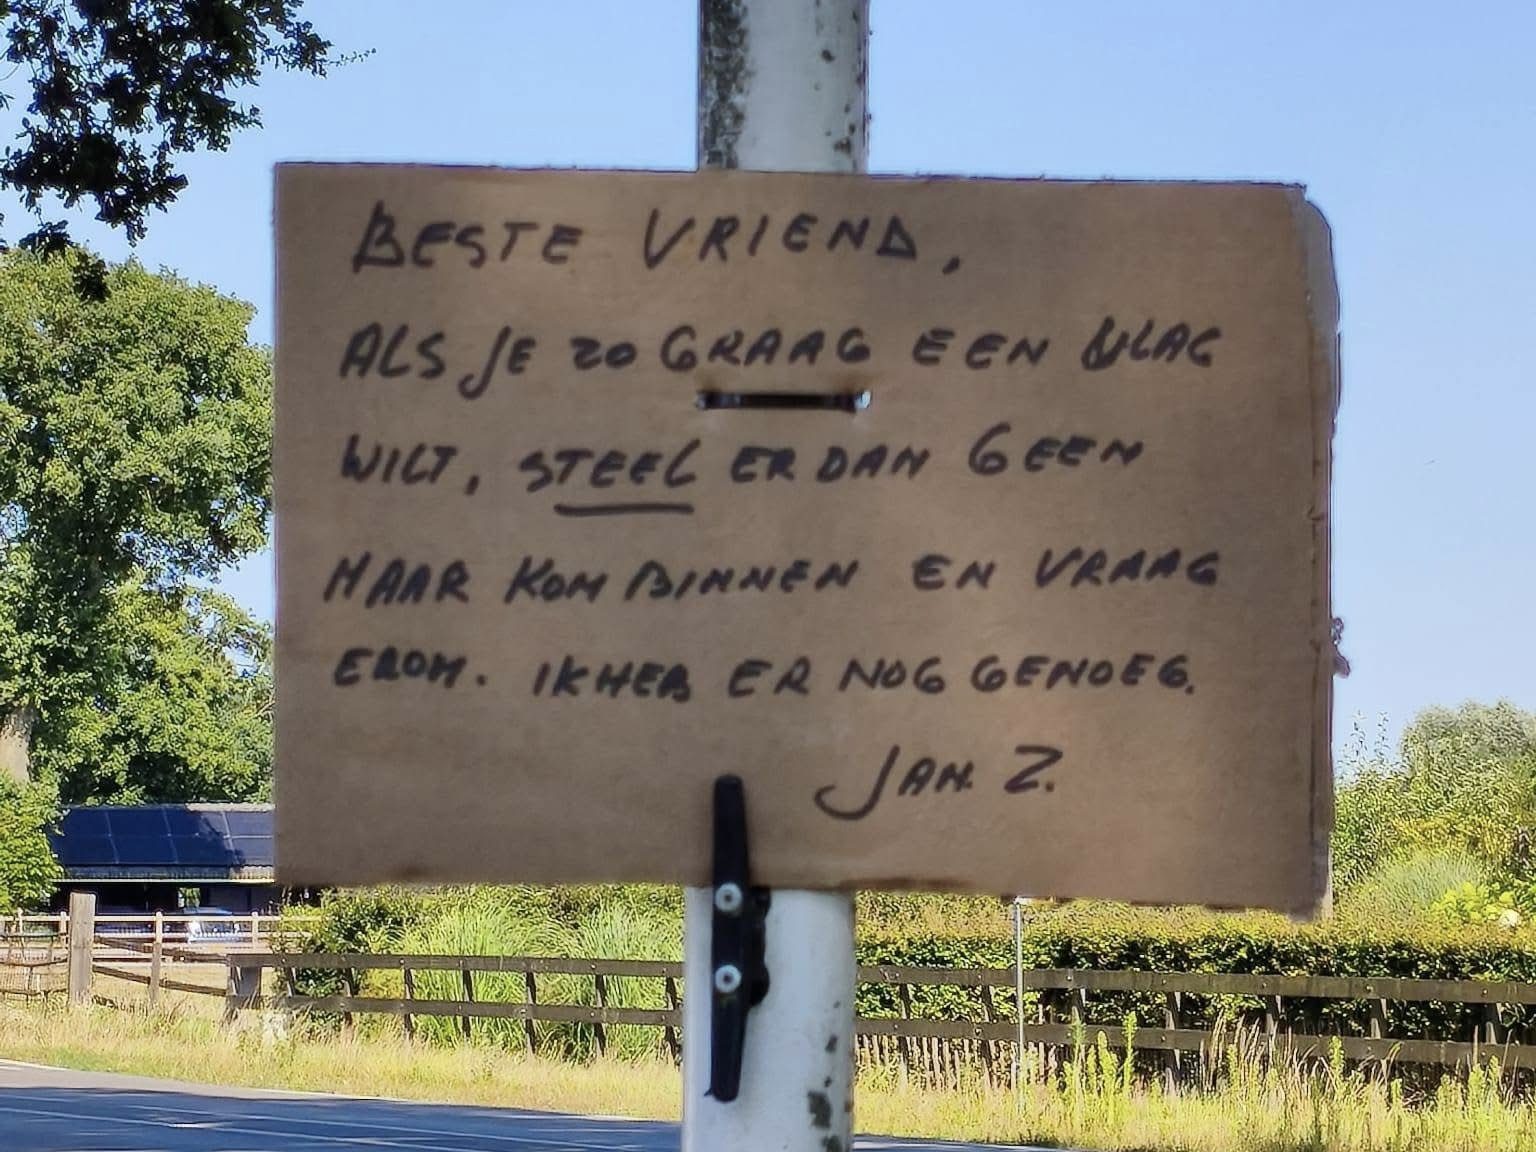 BESTE VRIEND,
ALS JE ZO GRAAG EEN VLAG
WILT, STEEL ER DAN GEEN
MAAR KOM BINNEN EN VRAAG
EROM. IK HEB ER NOG GENOEG.
JAN. Z.